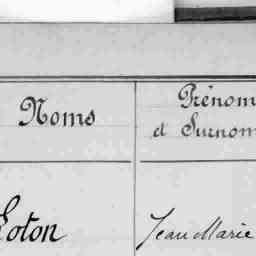 Noms
Prénom
et Surnom
Loton
Jean Marie